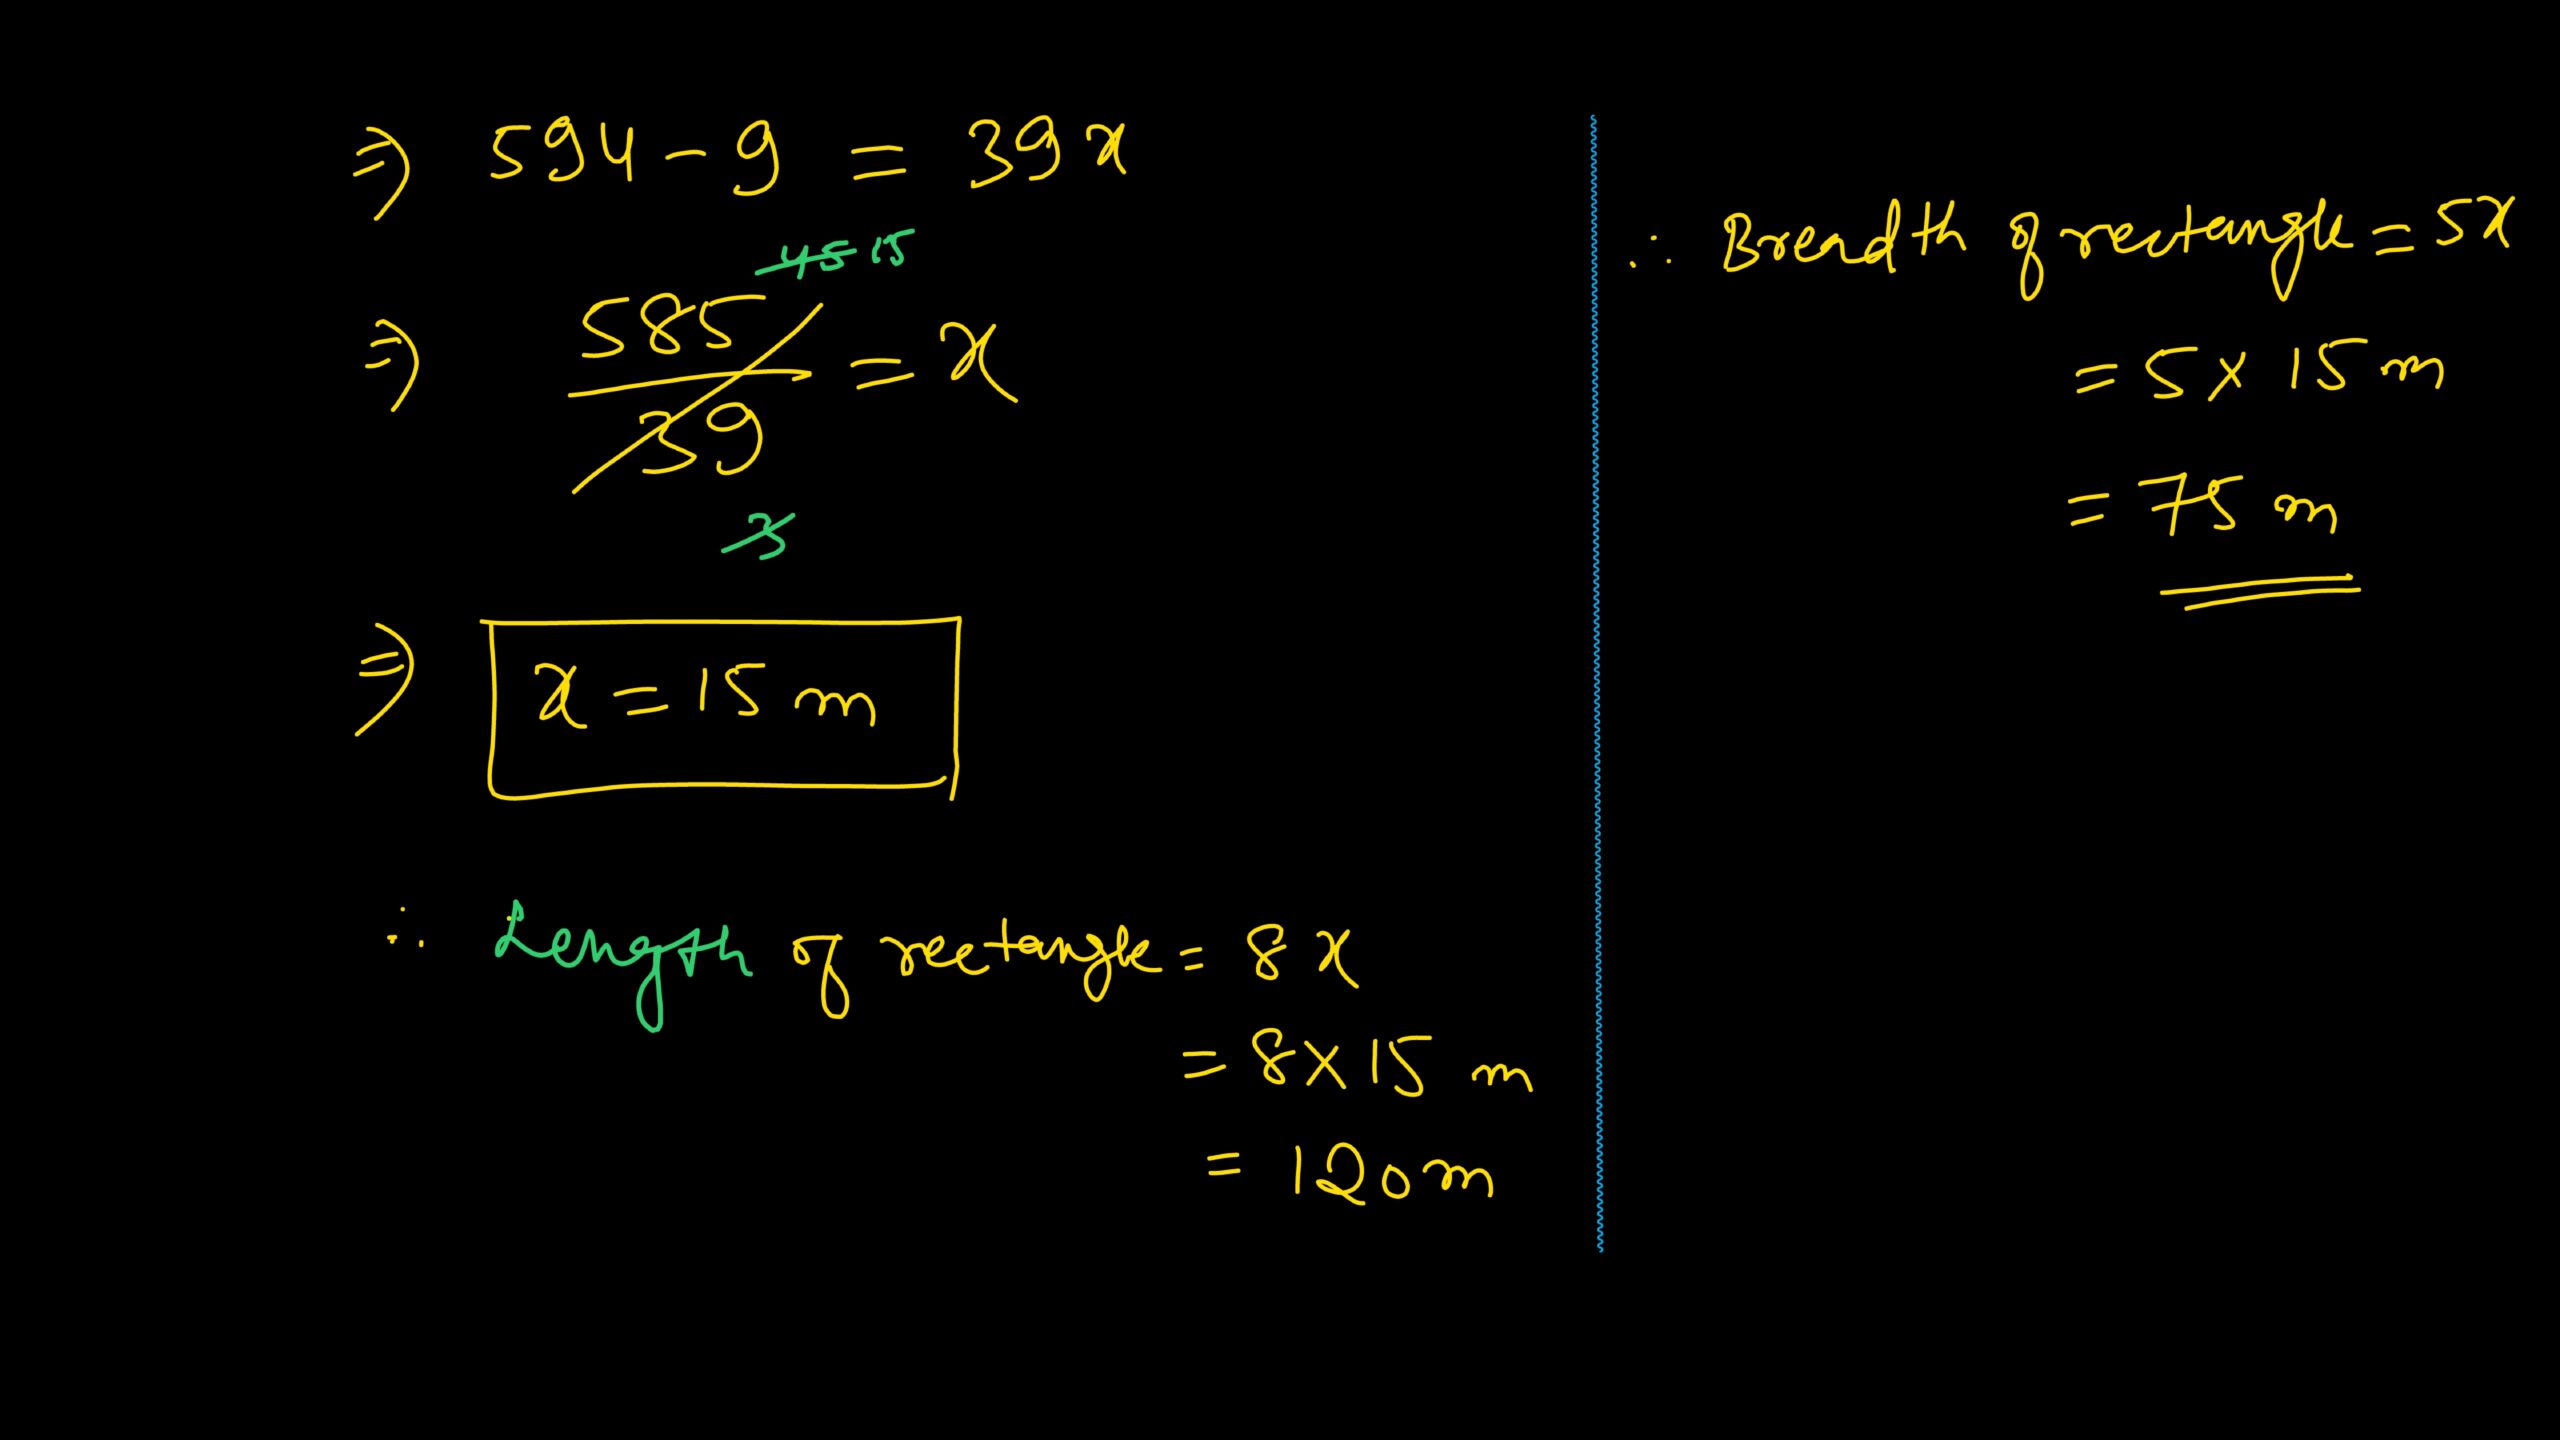 ⇒ 594 - 9 = 39x
45 15
⇒ 585/39 = x
3
⇒ x = 15 m
∴ Length of rectangle = 8x
= 8 × 15 m
= 120 m
∴ Breadth of rectangle = 5x
= 5 × 15 m
= 75 m